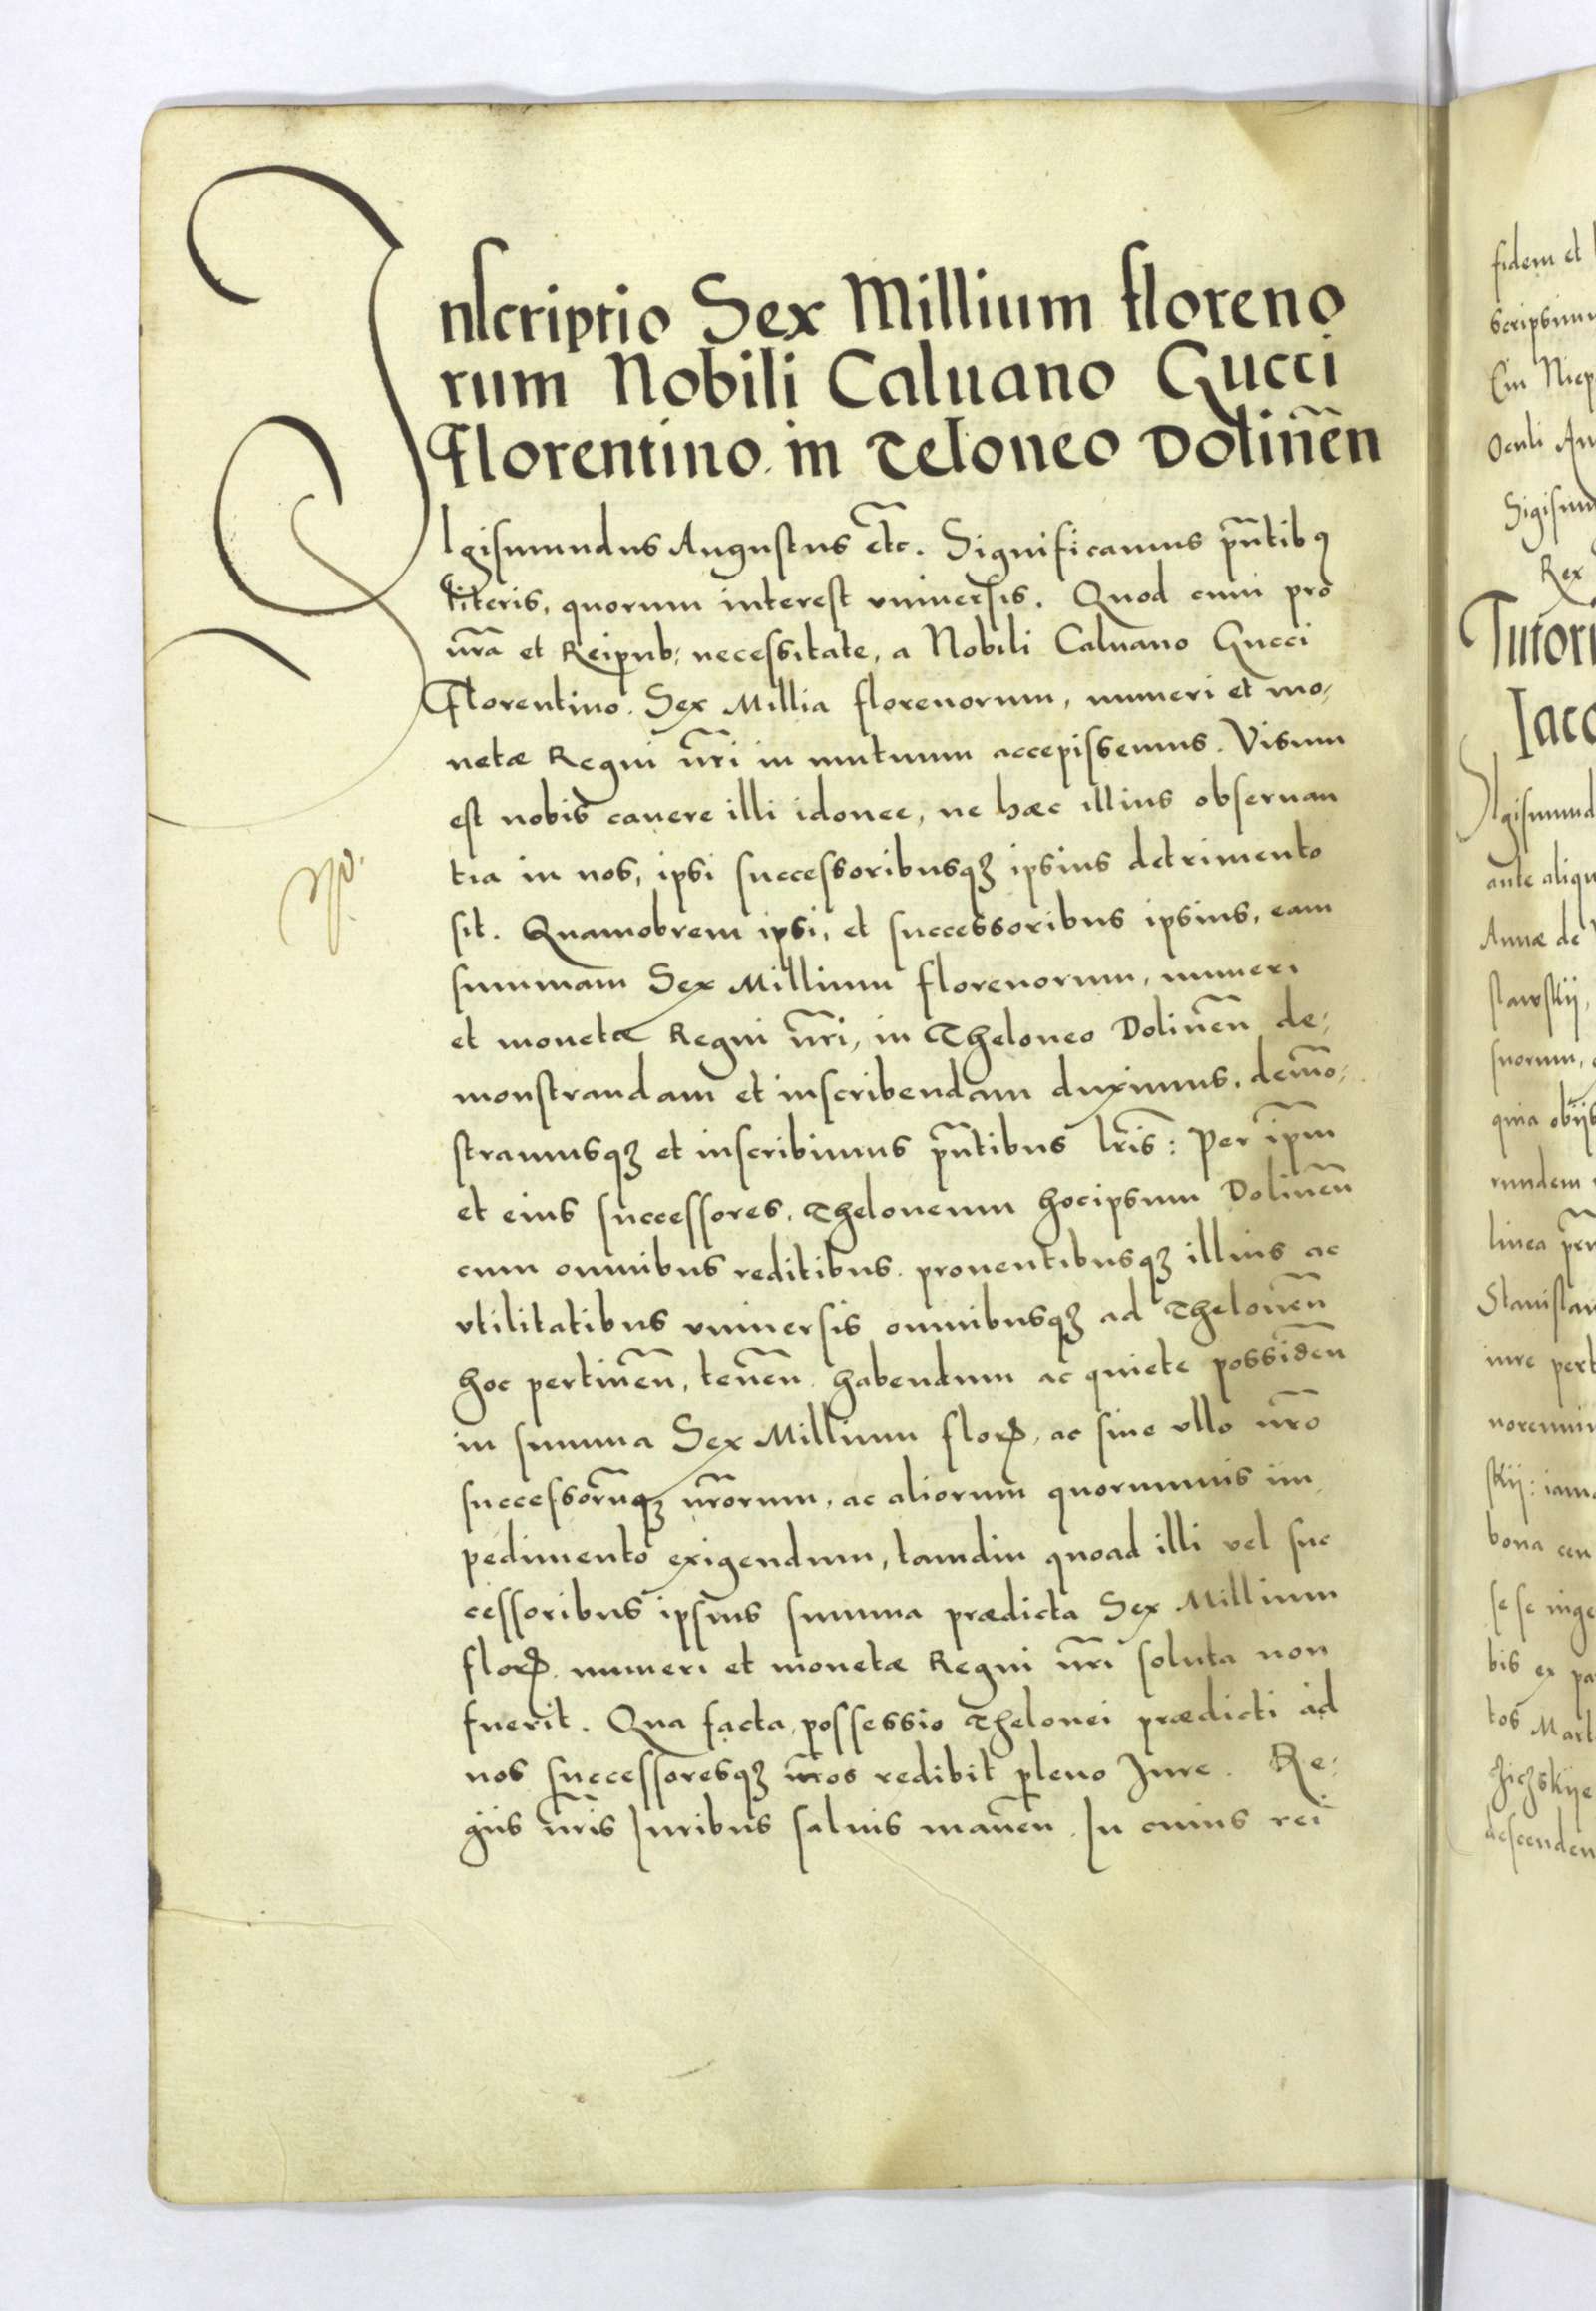 Inscriptio Sex Millium floreno
rum Nobili Caluano Gucci
Florentino in Teloneo Dolinen̄
SIgismundus Augustus etc̄. Significamus pn̄tibꝰ
literis, quorum interest vniuersis. Quod cum pro
nr̄a et Reipub: necessitate, a Nobili Caluano Gucci
Florentino. Sex Millia florenorum, numeri et mo,
netæ Regni nr̄i in mutuum accepissemus. Visum
est nobis cauere illi idonee, ne hæc illius obseruan
tia in nos, ipsi successoribusqꝫ ipsius detrimento
sit. Quamobrem ipsi, et successoribus ipsius, eam
summam Sex Millium florenorum, numeri
et monetæ Regni nr̄i, in Theloneo Dolinen̄ de,
monstrandam et inscribendam duximus. demō,
stramusqꝫ et inscribimus pn̄tibus lr̄is: Per ip̄m
et eius successores. Theloneum hocipsum Dolinen̄
cum omnibus reditibus. prouentibusqꝫ illius ac
vtilitatibus vniuersis omnibusqꝫ ad Thelonen̄
hoc pertinen̄, tenen̄ habendum ac quiete possiden̄
in summa Sex Millium florꝝ, ac sine vllo nr̄o
successorūqꝫ nr̄orum, ac aliorum quorumuis im
pedimento exigendum, tamdiu quoad illi vel suc
cessoribus ipsius summa prædicta Sex Millium
florꝝ. numeri et monetæ Regni nr̄i soluta non
fuerit. Qua facta, possessio Thelonei prædicti ad
nos successoresqꝫ nr̄os redibit pleno Jure. Re,
giis nr̄is Iuribus saluis manen̄. In cuius rei
fidem et
scripsimu
Oculi
Sigism
Rex
Tutori
Jaco
SIgismund
ante aliqu
Annæ de
stawskij,
suorum,
quia obijs
rundem
linea
Stanislau
iure pert
skij: iam
bona
se se inge
bis ex pa
tos Mart
descenden